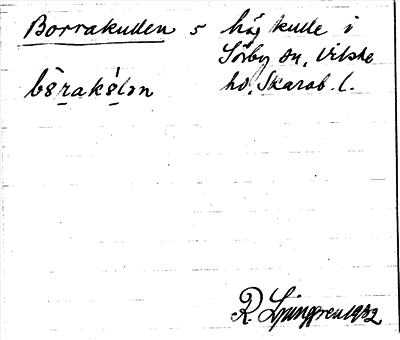 Borrakullen s hög kulle i
Sörby sn, Vilske
bòrakúlən hd, Skarab. l.
R. Ljunggren 1932